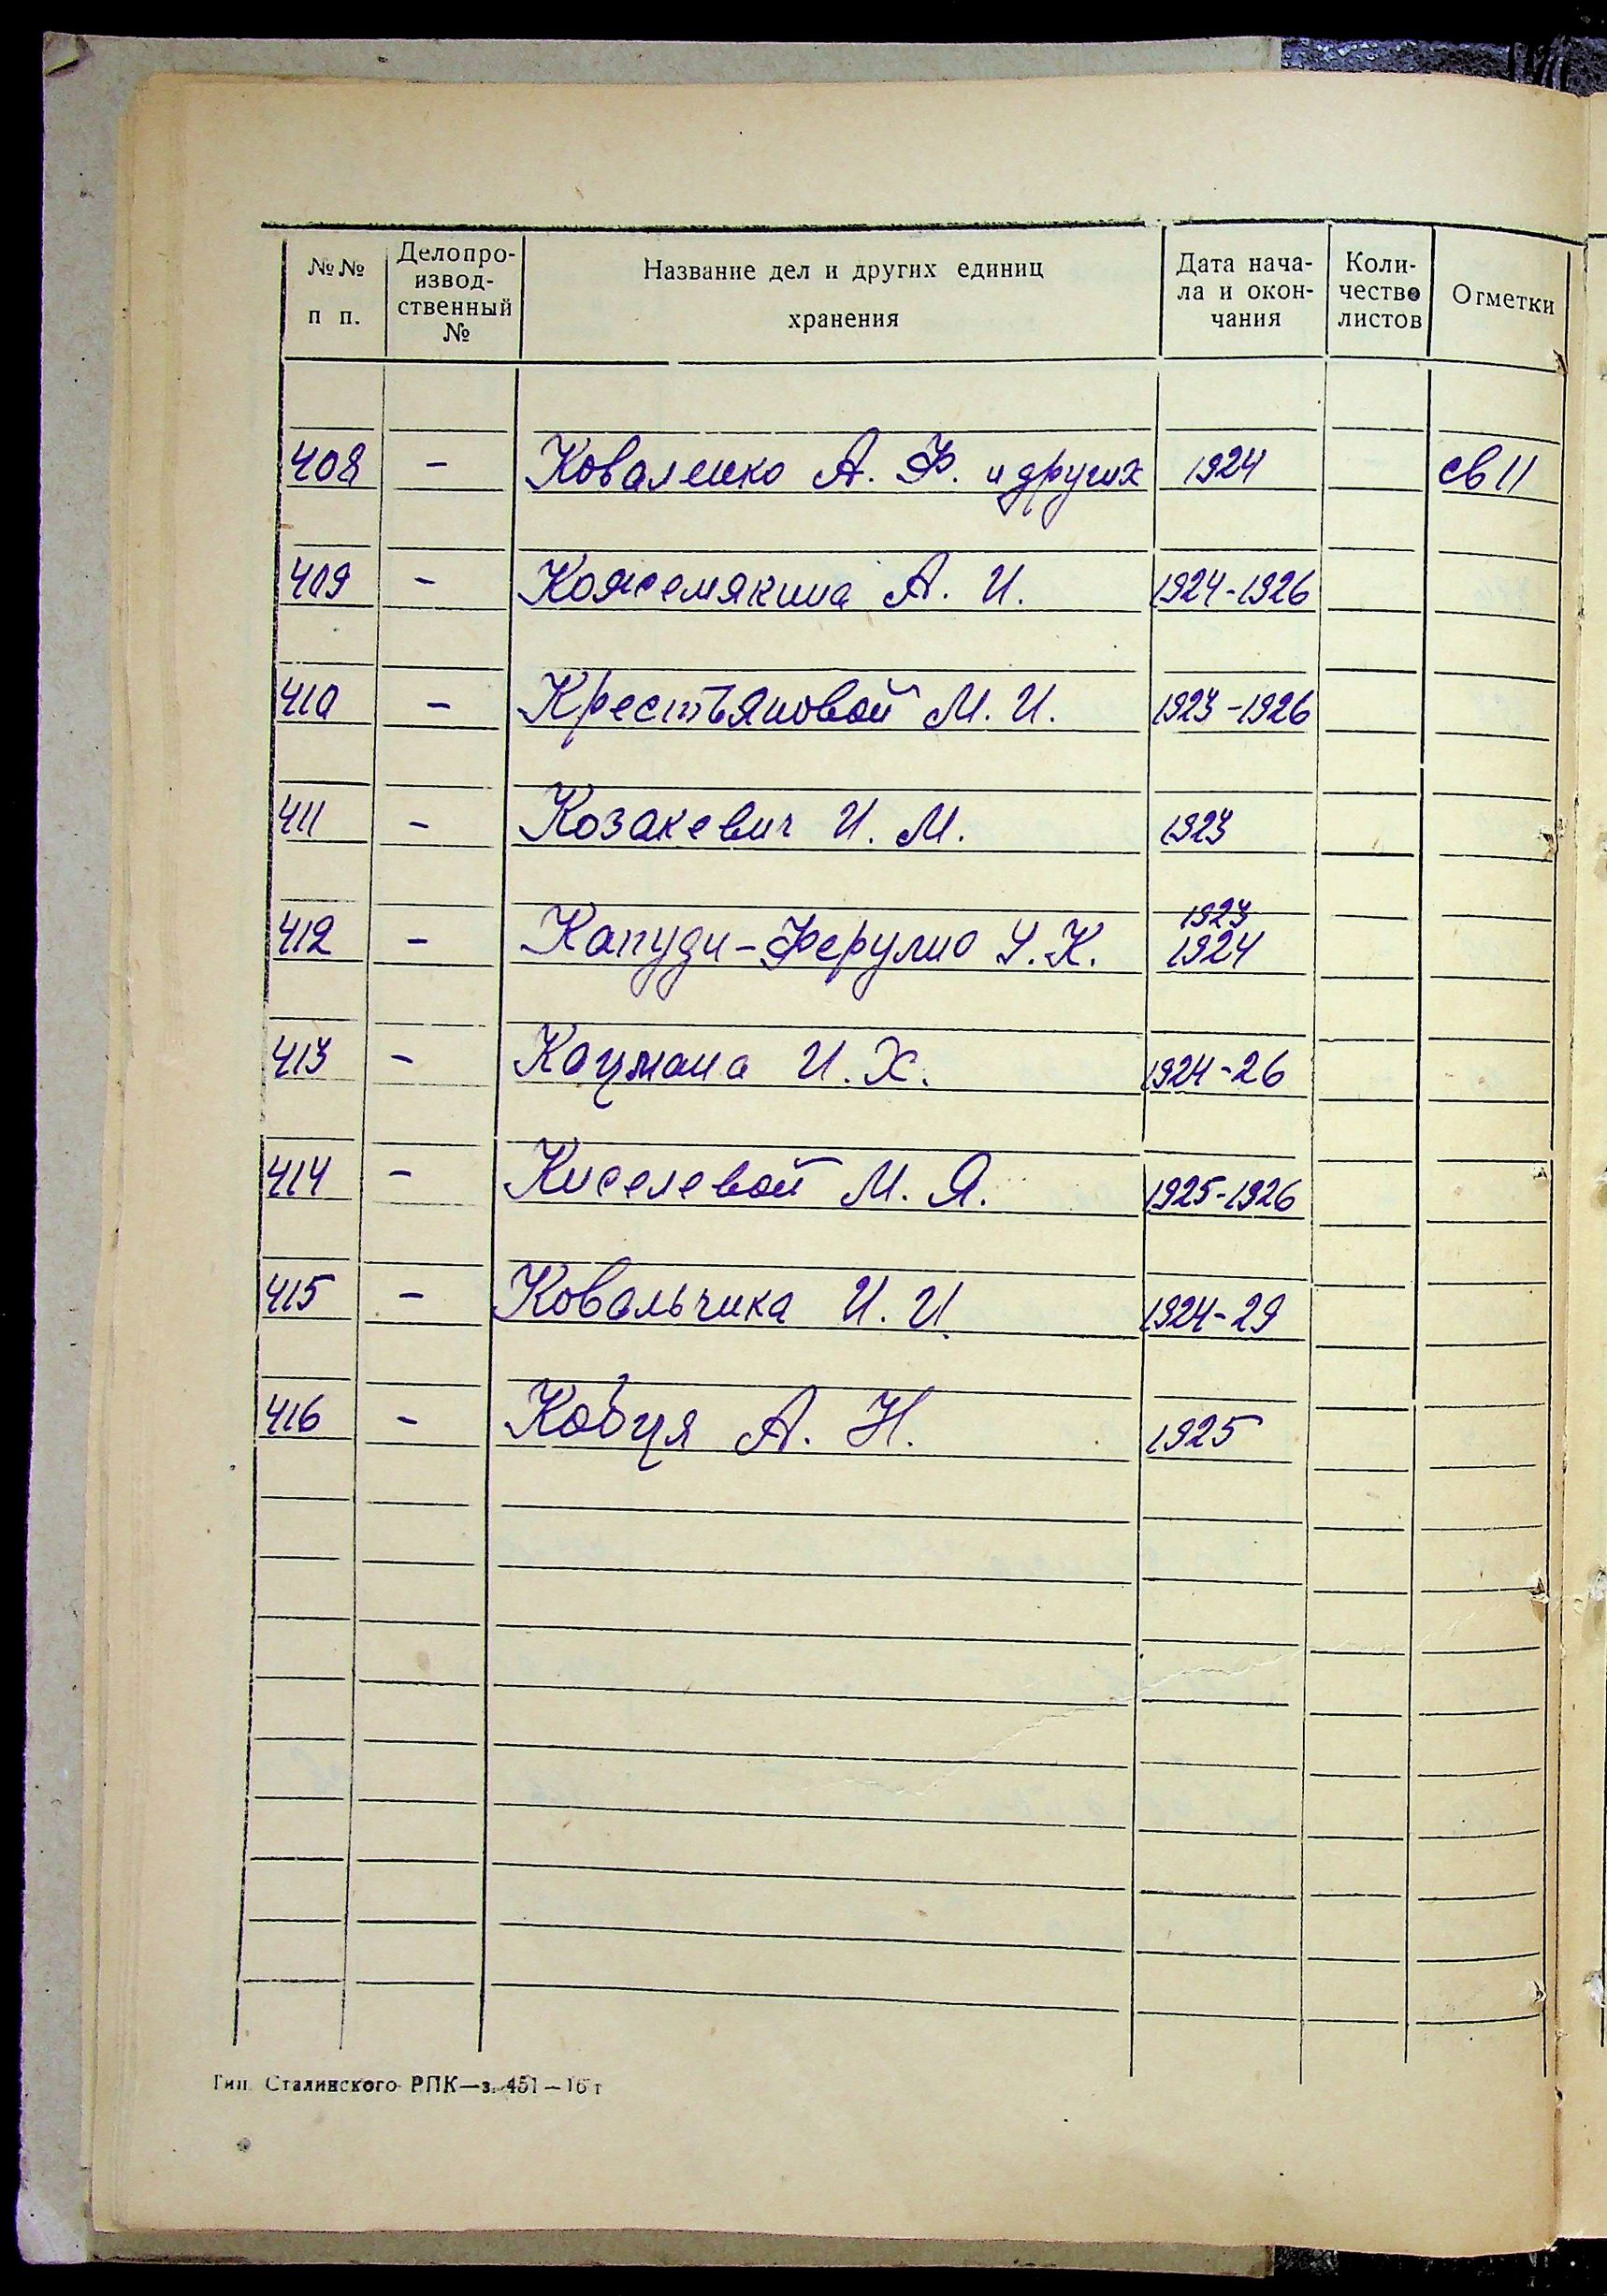 №№ п п. Делопро-извод-ственный № Название дел и других единиц хранения Дата нача-ла и окон-чания Коли-чество листов Отметки
408 - Коваленко А. Ф. и других 1924 св 11
409 - Кожемякина А. И. 1924-1926
410 - Крестьяновой М. И. 1923-1926
411 - Козакевич И. М. 1923
412 - Капуди-Ферулио У. К. 1923 1924
413 - Кацмана И. Х. 1924-26
414 - Киселевой М. Я. 1925-1926
415 - Ковальчика И. И. 1924-29
416 - Кобця А. Н. 1925
Тип. Сталинского РПК—з. 451—16 т